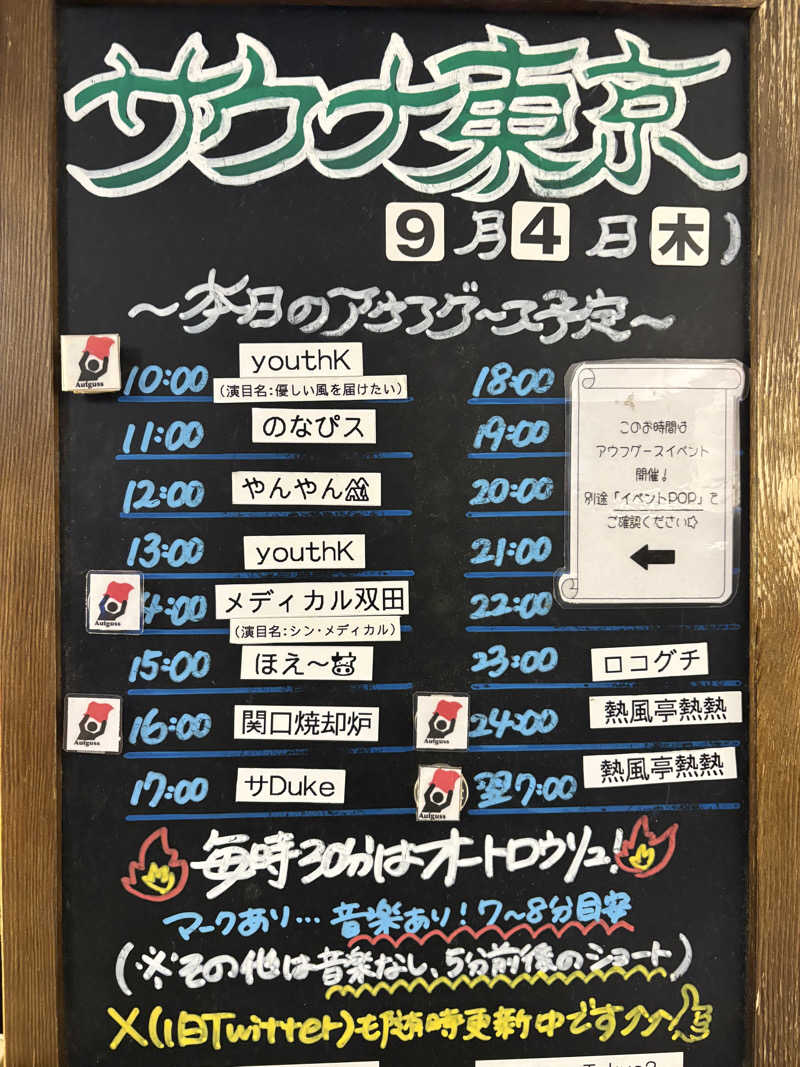 サウナ東京
9月4日(木)
～本日のアウフグース予定～
Aufguss
10:00 youthK
(演目名:優しい風を届けたい)
11:00 のなぴス
12:00 やんやん
13:00 youthK
Aufguss
14:00 メディカル双田
(演目名:シン・メディカル)
15:00 ほえ～
Aufguss
16:00 関口焼却炉
17:00 サDuke
18:00
19:00
20:00
21:00
22:00
このお時間は
アウフグースイベント
開催!
別途「イベントPOP」で
ご確認ください
23:00 ロコグチ
Aufguss
24:00 熱風亭熱熱
Aufguss
翌7:00 熱風亭熱熱
毎時30分はオートロウリュ!
マークあり…音楽あり!7～8分目安
(※その他は音楽なし、5分前後のショート)
X(旧Twitter)も随時更新中です↗↗